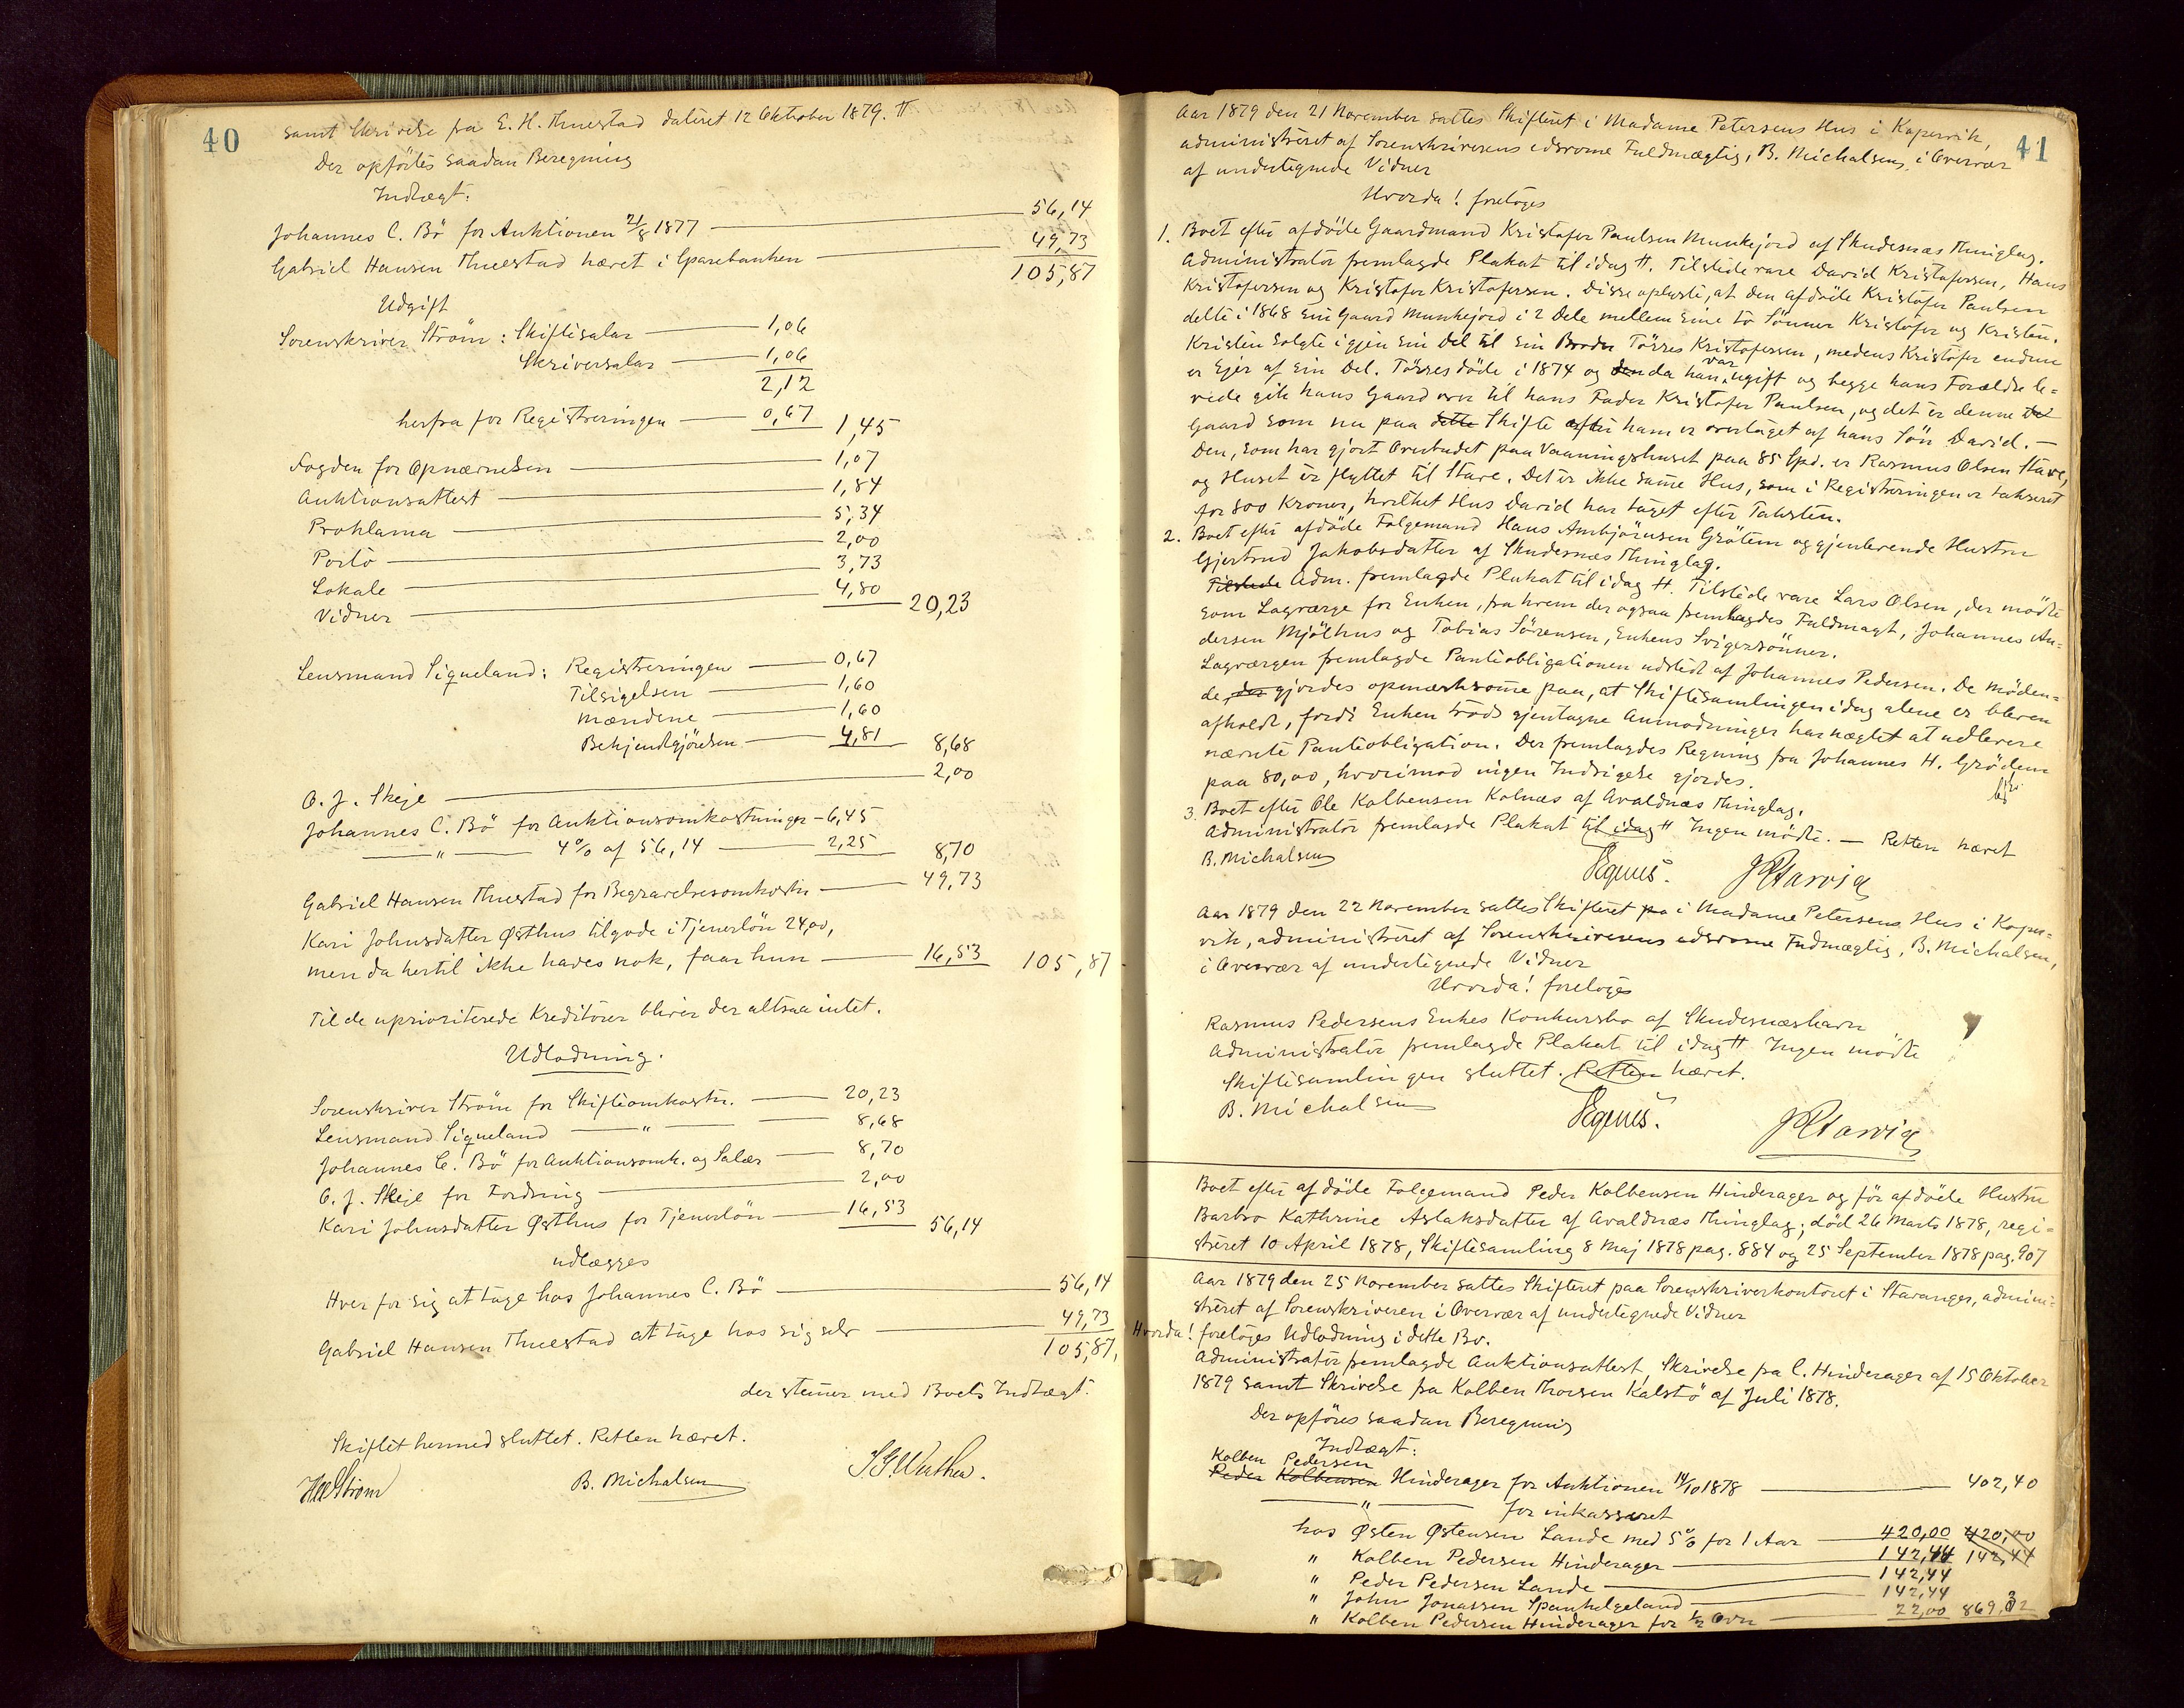 40
samt Skrivelse fra E. H. Thuestad dateret 12 Oktober 1879. #
Der opførtes saadan Beregning
Indtægt:
Johannes C. Bö for Auktionen 21/8 1877 — 56,14
Gabriel Hansen Thuestad hævet i Sparebanken — 49,73
105,87
Udgift
Sorenskriver Ström: Skiftesalar — 1,06
Skriversalar — 1,06
2,12
herfra for Registreringen — 0,67 1,45
Fogden for Opnævnelsen — 1,07
Auktionsattest — 1,84
Proklama — 5,34
Porto — 2,00
Lokale — 3,73
Vidner — 4,80 20,23
Lensmand Siqueland: Registreringen — 0,67
Tilsigelsen — 1,60
Mændene — 1,60
Bekjendtgjörelsen — 4,81 8,68
O. J. Skeje — 2,00
Johannes C. Bö for Auktionsomkostninger — 6,45
— " — 4% af 56,14 — 2,25 8,70
Gabriel Hansen Thuestad for Begravelsesomkostn — 49,73
Kari Johnsdatter Østhus tilgode i Tjenerlön 24,00,
men da hertil ikke haves nok, faar hun — 16,53 105,87
Til de uprioriterede Kreditorer bliver der altsaa intet.
Udlodning.
Sorenskriver Ström for Skifteomkostn. — 20,23
Lensmand Siqueland — " — 8,68
Johannes C. Bö for Auktionsomk. og Salær — 8,70
O. J. Skeje for Fordring — 2,00
Kari Johnsdatter Østhus for Tjenerlön — 16,53 56,14
udlægges
Hver for sig at tage hos Johannes C. Bö — 56,14
Gabriel Hansen Thuestad at tage hos sig selv — 49,73
105,87,
der stemer med Boets Indtægt.
Skiftet hermed sluttet. Retten hævet.
B. Michalsen
41
Aar 1879 den 21 November sattes Skifteret i Madame Petersens Hus i Kopervik,
administreret af Sorenskriverens edsvorne Fuldmægtig, B. Michalsen, i Overvær
af undertegnede Vidner
Hvorda! foretoges
1. Boet efter afdöde Gaardmand Kristofer Paulsen Munkejord af Skudesnæs Thinglag.
Administrator fremlagde Plakat til idag #. Tilstede vare David Kristofersen, Hans
Kristofersen og Kristofer Kristofersen. Disse oplyste, at den afdöde Kristofer Paulsen
delte i 1868 sin Gaard Munkejord i 2 Dele mellem sine to Sönner Kristofer og Kristen.
Kristen solgte igjen sin Del til sin Broder Törres Kristofersen, medens Kristofer endnu
er Ejer af sin Del. Törres döde i 1874 og den da han var ugift og begge hans Forældre le-
vede gik hans Gaard over til hans Fader Kristofer Paulsen, og det er denne Del
Gaard som nu paa dette Skifte efter ham er overtaget af hans Sön David. —
Den, som har gjort Overbudet paa Vaaningshuset paa 85 Spd. er Rasmus Olsen Stave,
og Huset er flyttet til Stave. Det er ikke same Hus, som i Registreringen er takseret
for 800 Kroner, hvilket Hus David har taget efter Taksten.
2. Boet efter afdöde Folgemand Hans Ambjörnsen Gröten og gjenlevende Hustru
Gjertrud Jakobsdatter af Skudesnæs Thinglag.
Tilstede Adm. fremlagde Plakat til idag #. Tilstede vare Lars Olsen, der mödte
som Lagværge for Enken, fra hvem der ogsaa fremlagdes Fuldmagt, Johannes An-
dersen Mjölhus og Tobias Sörensen, Enkens Svigersönner.
Lagværgen fremlagde Panteobligationen udstedt af Johannes Pedersen. De möden-
de, der gjordes opmærksome paa, at Skiftesamlingen idag alene er bleven
afholdt, fordi Enken trods gjentagne Anmodninger har nægtet at udlevere
nævnte Panteobligation. Der fremlagdes Regning fra Johannes H. Grödem
paa 80,00, hvorimod ingen Indsigelse gjordes.
3. Boet efter Ole Kolbensen Kolnæs af Avaldnæs Thinglag.
Administrator fremlagde Plakat til idag # Ingen mödte. — Retten hævet
B. Michalsen
Aar 1879 den 22 November sattes Skifteret pa i Madame Petersens Hus i Koper-
vik, administreret af Sorenskriverens edsvorne Fudmægtig, B. Michalsen,
i Overvær af undertegnede Vidner
Hvorda! foretoges
Rasmus Pedersens Enkes Konkursbo af Skudesnæshavn
Administrator fremlagde Plakat til idag # Ingen mödte
Skiftesamlingen sluttet. Retten hævet.
B. Michalsen
Boet efter afdöde Folgemand Peder Kolbensen Hinderager og för afdöde Hustru
Barbro Kathrine Aslaksdatter af Avaldnæs Thinglag; död 26 Marts 1878, regi-
streret 10 April 1878, Skiftesamling 8 Maj 1878 pag. 884 og 25 September 1878 pag. 907
Aar 1879 den 25 November sattes Skifteret paa Sorenskriverkontoret i Stavanger, admini-
streret af Sorenskriveren i Overvær af undertegnede Vidner
Hvorda! foretoges Udlodning i dette Bo.
Administrator fremlagde Auktionsattest, Skrivelse fra C. Hinderager af 15 Oktober
1879 samt Skrivelse fra Kolben Thorsen Kalstö af Juli 1878.
Der opföres saadan Beregning
Indtægt:
Kolben Pedersen
Peder Kolbensen Hinderager for Auktionen 14/10 1878 — 402,40
— " — for inkasseret
hos Østen Østensen Lande med 5% for 1 Aar — 420,00 420,00
" Kolben Pedersen Hinderager — 142,44 142,44
" Peder Pedersen Lande — 142,44
" John Jonassen Spanhelgeland — 142,44
" Kolben Pedersen Hinderager for 1/2 Ovn — 22,00 869,32